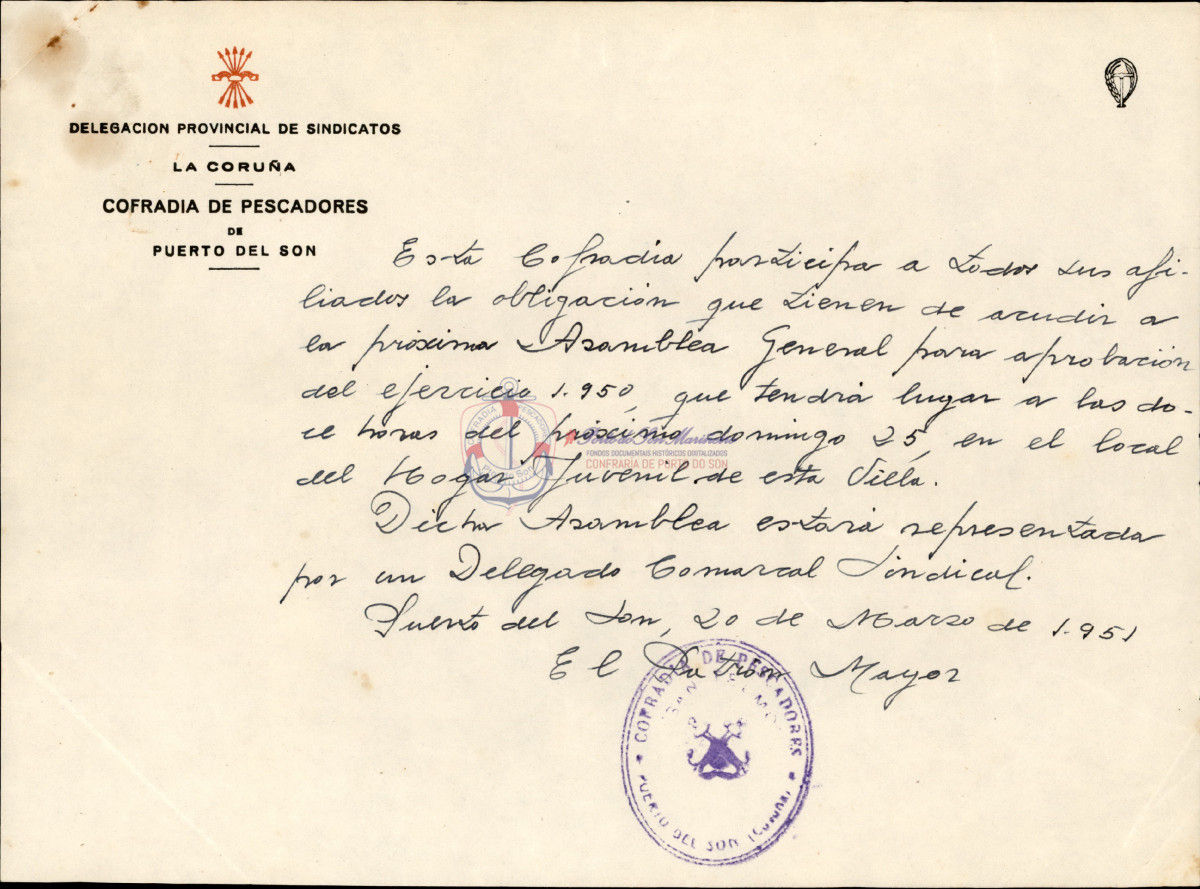 DELEGACION PROVINCIAL DE SINDICATOS
LA CORUÑA
COFRADIA DE PESCADORES
DE
PUERTO DEL SON
Esta Cofradia participa a todos sus afi-
liados la obligación que tienen de acudir a
la próxima Asamblea General para aprobación
del ejercicio 1.950, que tendrá lugar a las do-
ce horas del próximo domingo 25, en el local
del Hogar Juvenil de esta Villa.
Dicha Asamblea estará representada
por un Delegado Comarcal Sindical.
Puerto del Son, 20 de Marzo de 1.951
El Patrón Mayor
COFRADIA DE PESCADORES
PUERTO DEL SON (Coruña)
COFRADIA PESCADORES
Puerto Son
Porto do Son Mariñeiro
FONDOS DOCUMENTAIS HISTÓRICOS DIXITALIZADOS
CONFRARÍA DE PORTO DO SON